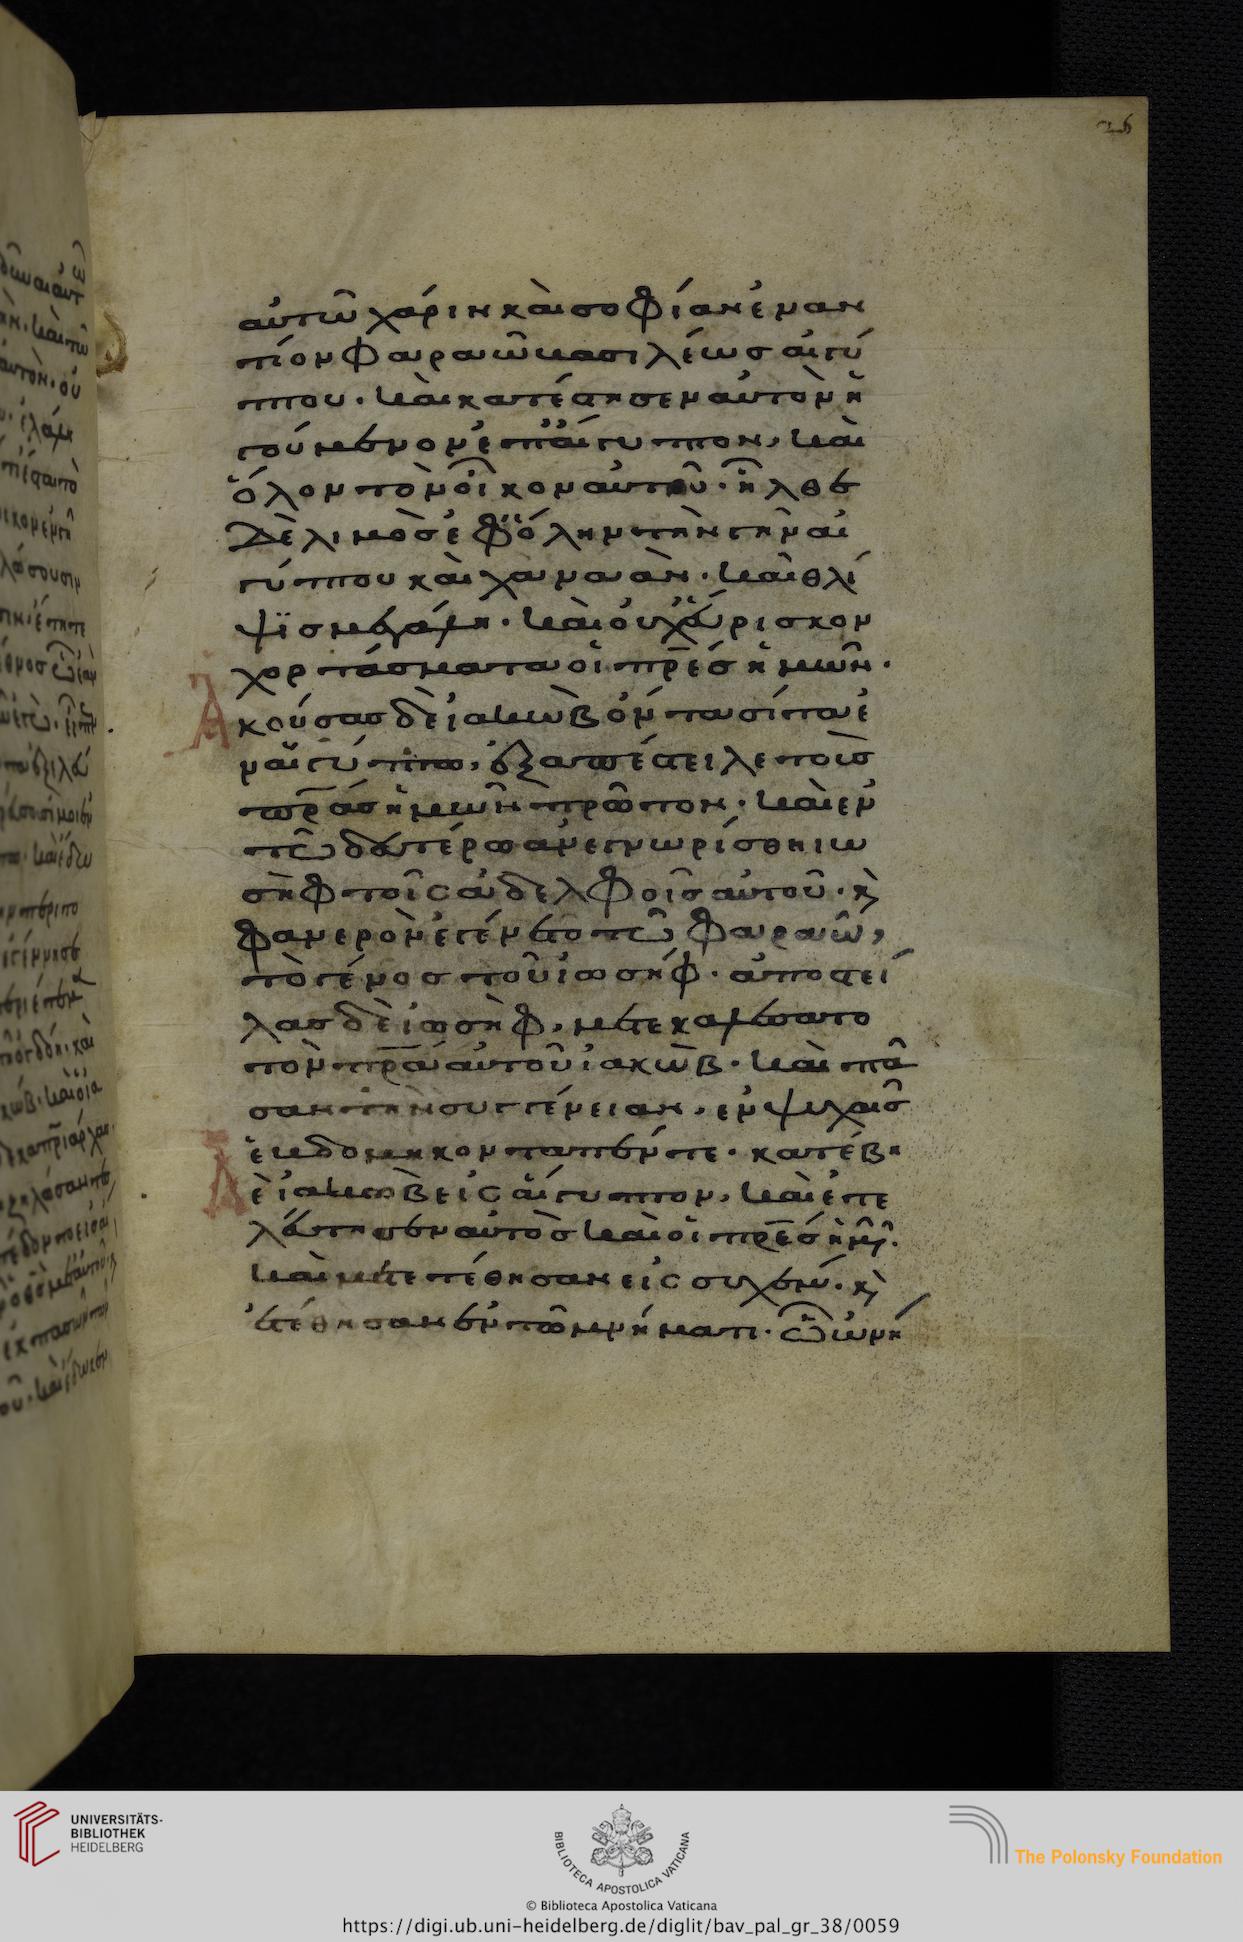 αὐτῶ χάριν καὶ σοφίαν ἐναν
τίον φαραὼ βασιλέωσ αἰγύ
πτου· καὶ κατέστησεν αὐτὸν ἡ
γούμενον ἐπ' αἴγυπτον, καὶ
ὅλον τὸν οἶκον αὐτοῦ· ἦλθε
δὲ λιμὸσ ἐφ' ὅλην τὴν γῆν αἰ
γύπτου καὶ χαναάν· καὶ θλί
ψϊσ μεγάλη· καὶ οὐχ εὕρισκον
χορτάσματα οἱ πρ̅εσ ἡμῶν·
Ἀκούσασ δὲ ἰακὼβ ὄντα σίτα ἐ
ν αἰγύπτω, ἐξαπέστειλε τοὺσ
πρ̅ασ ἡμῶν πρῶτον· καὶ ἐν
τῶ δευτέρω ἀνεγνωρίσθη ἰω
σὴφ τοῖς ἀδελφοῖσ αὐτοῦ· κ̀
φανερὸν ἐγένετο τῶ φαραὼ,
τὸ γένοσ τοῦ ἰωσήφ· ἀποστεί
λασ δὲ ἰωσὴφ, μετεκαλέσατο
τὸν πρ̅α αὐτοῦ ἰακὼβ· καὶ πᾶ
σαν τὴν συγγένειαν, ἐν ψυχαῖσ
ἑβδομήκοντα πέντε· κατέβη
Δὲ ἰακὼβ εἰς αἴγυπτον, καὶ ἐτε
λεύτησεν αὐτὸσ καὶ οἱ πρ̅εσ ἡμῶν·
καὶ μετετέθησαν εἰς συχέμ· κ̀
ἐτέθησαν ἐν τῶ μνήματι· ὧ ὠνή
UNIVERSITÄTS-
BIBLIOTHEK
HEIDELBERG
BIBLIOTECA APOSTOLICA VATICANA
© Biblioteca Apostolica Vaticana
The Polonsky Foundation
https://digi.ub.uni-heidelberg.de/diglit/bav_pal_gr_38/0059